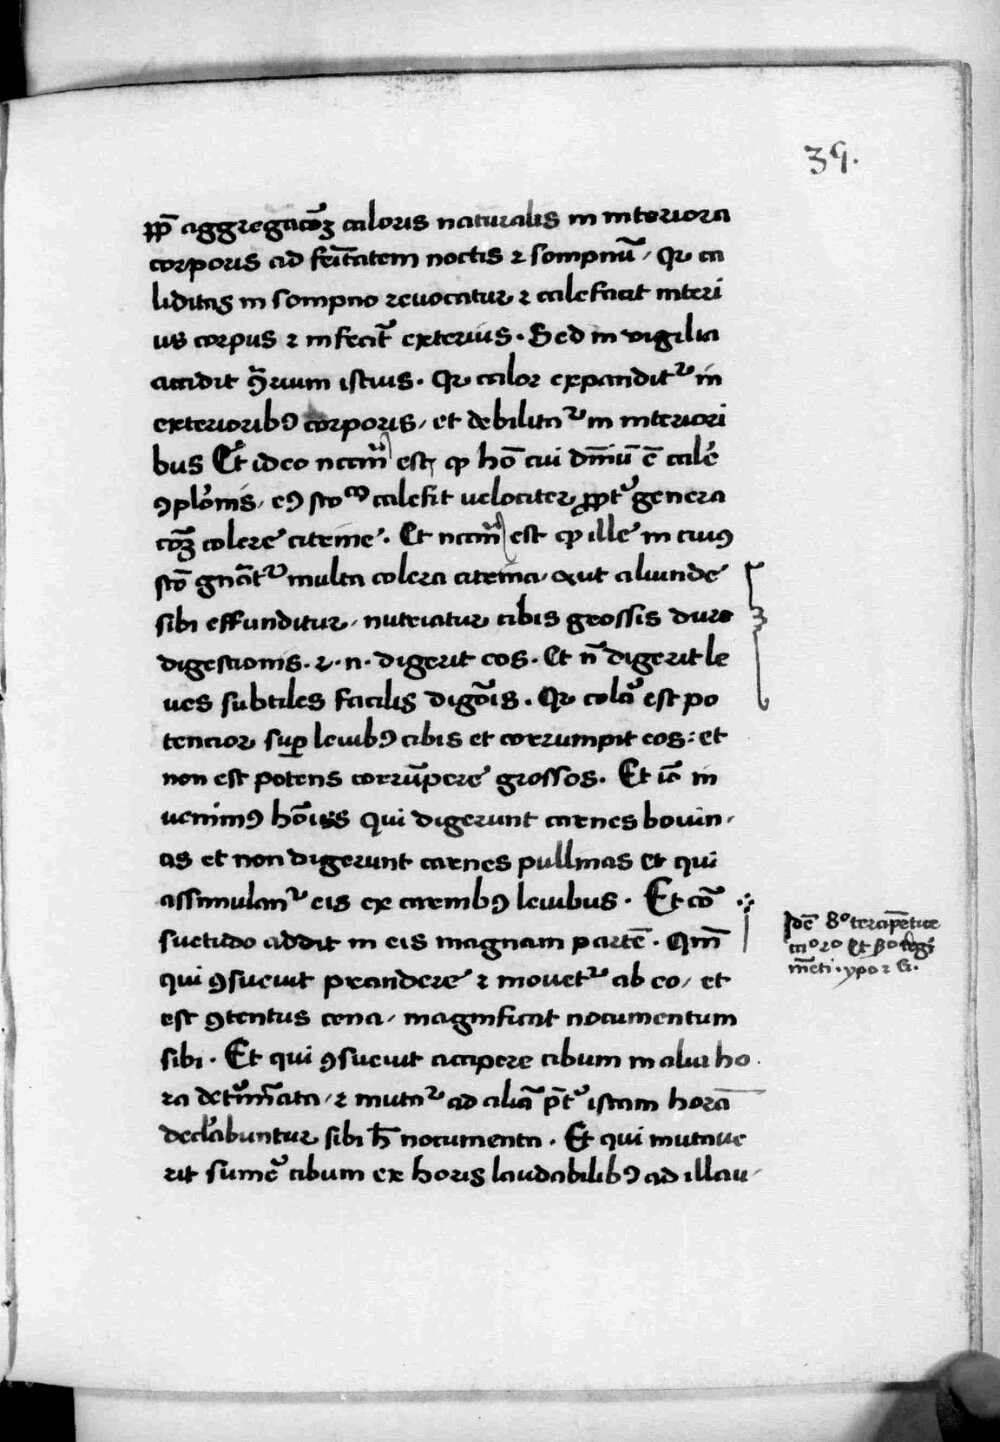 39.
ꝓꝑ̄ aggregacōꝫ caloris naturalis in interiora
corporis ad feīt̄atem noctis ⁊ sompnū / Qꝛ ca
liditas in sompno revocatur ⁊ calefacit interi
us corpus ⁊ infecīt exterius. Sed in vigilia
accidit ꝯ̄rium istius. Qꝛ calor expanditᷣ in
exterioribꝰ corporis / et debilitaᷣ in interiori
bus Et ideo nccm̄ est ꝙ hō cui dm̄iū ē cale
ꝯplōnis, eꝰ stōᷓ calefit velociter ꝓpt̄ genera
cōꝫ colere citrine. Et nccm̄ est ꝙ ille in cuiꝰ
stō gn̄atᷣ multa colera citrina / aut aliunde
sibi effunditur, nutriatur cibis grossis dure
digestionis. ⁊. n. digerit eos. Et n̄ digerit le
ves subtiles facilis digōis. Qꝛ colā est po
tencior suꝑ levibꝰ cibis et corrumpit eos: et
non est potens corrūpere grossos. Et iō in
venimꝰ hōies qui digerunt carnes bovin-
as et non digerunt carnes pullinas Et qui
assimulanᷣ eis ex carnibꝰ levibus. Et cō
suetudo addit in eis magnam partē. Qm̄
qui ꝯsuevit prandere ⁊ movetᷣ ab eo, et
est ꝯtentus cena, magnificat nocumentum
sibi. Et qui ꝯsuevit accipere cibum in alia ho
ra det̄m̄ata, ⁊ mutaᷣ ad aliā p̄t̄ istam horā
declābuntur sibi h̄ nocumenta. Et qui mutave
rit sumē cibum ex horis laudabilibꝰ ad illau-
Idē 8º terapētice
Et
m̄cti. ypo ⁊ G.